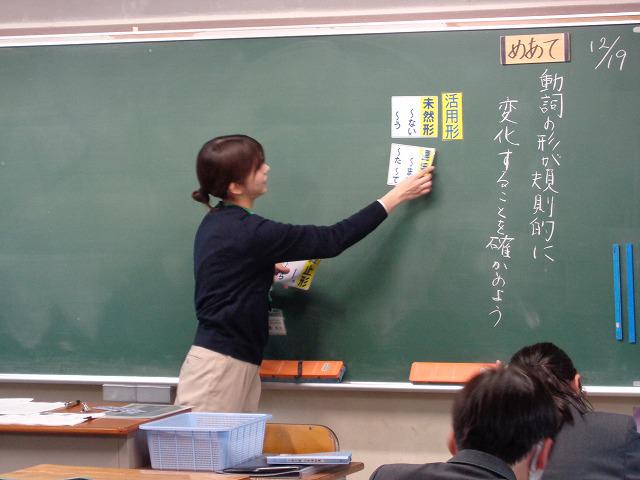 12/19
めあて
動詞の形が規則的に
変化することを確かめよう
活用形
未然形
~ない
~う
~た ~て
止形